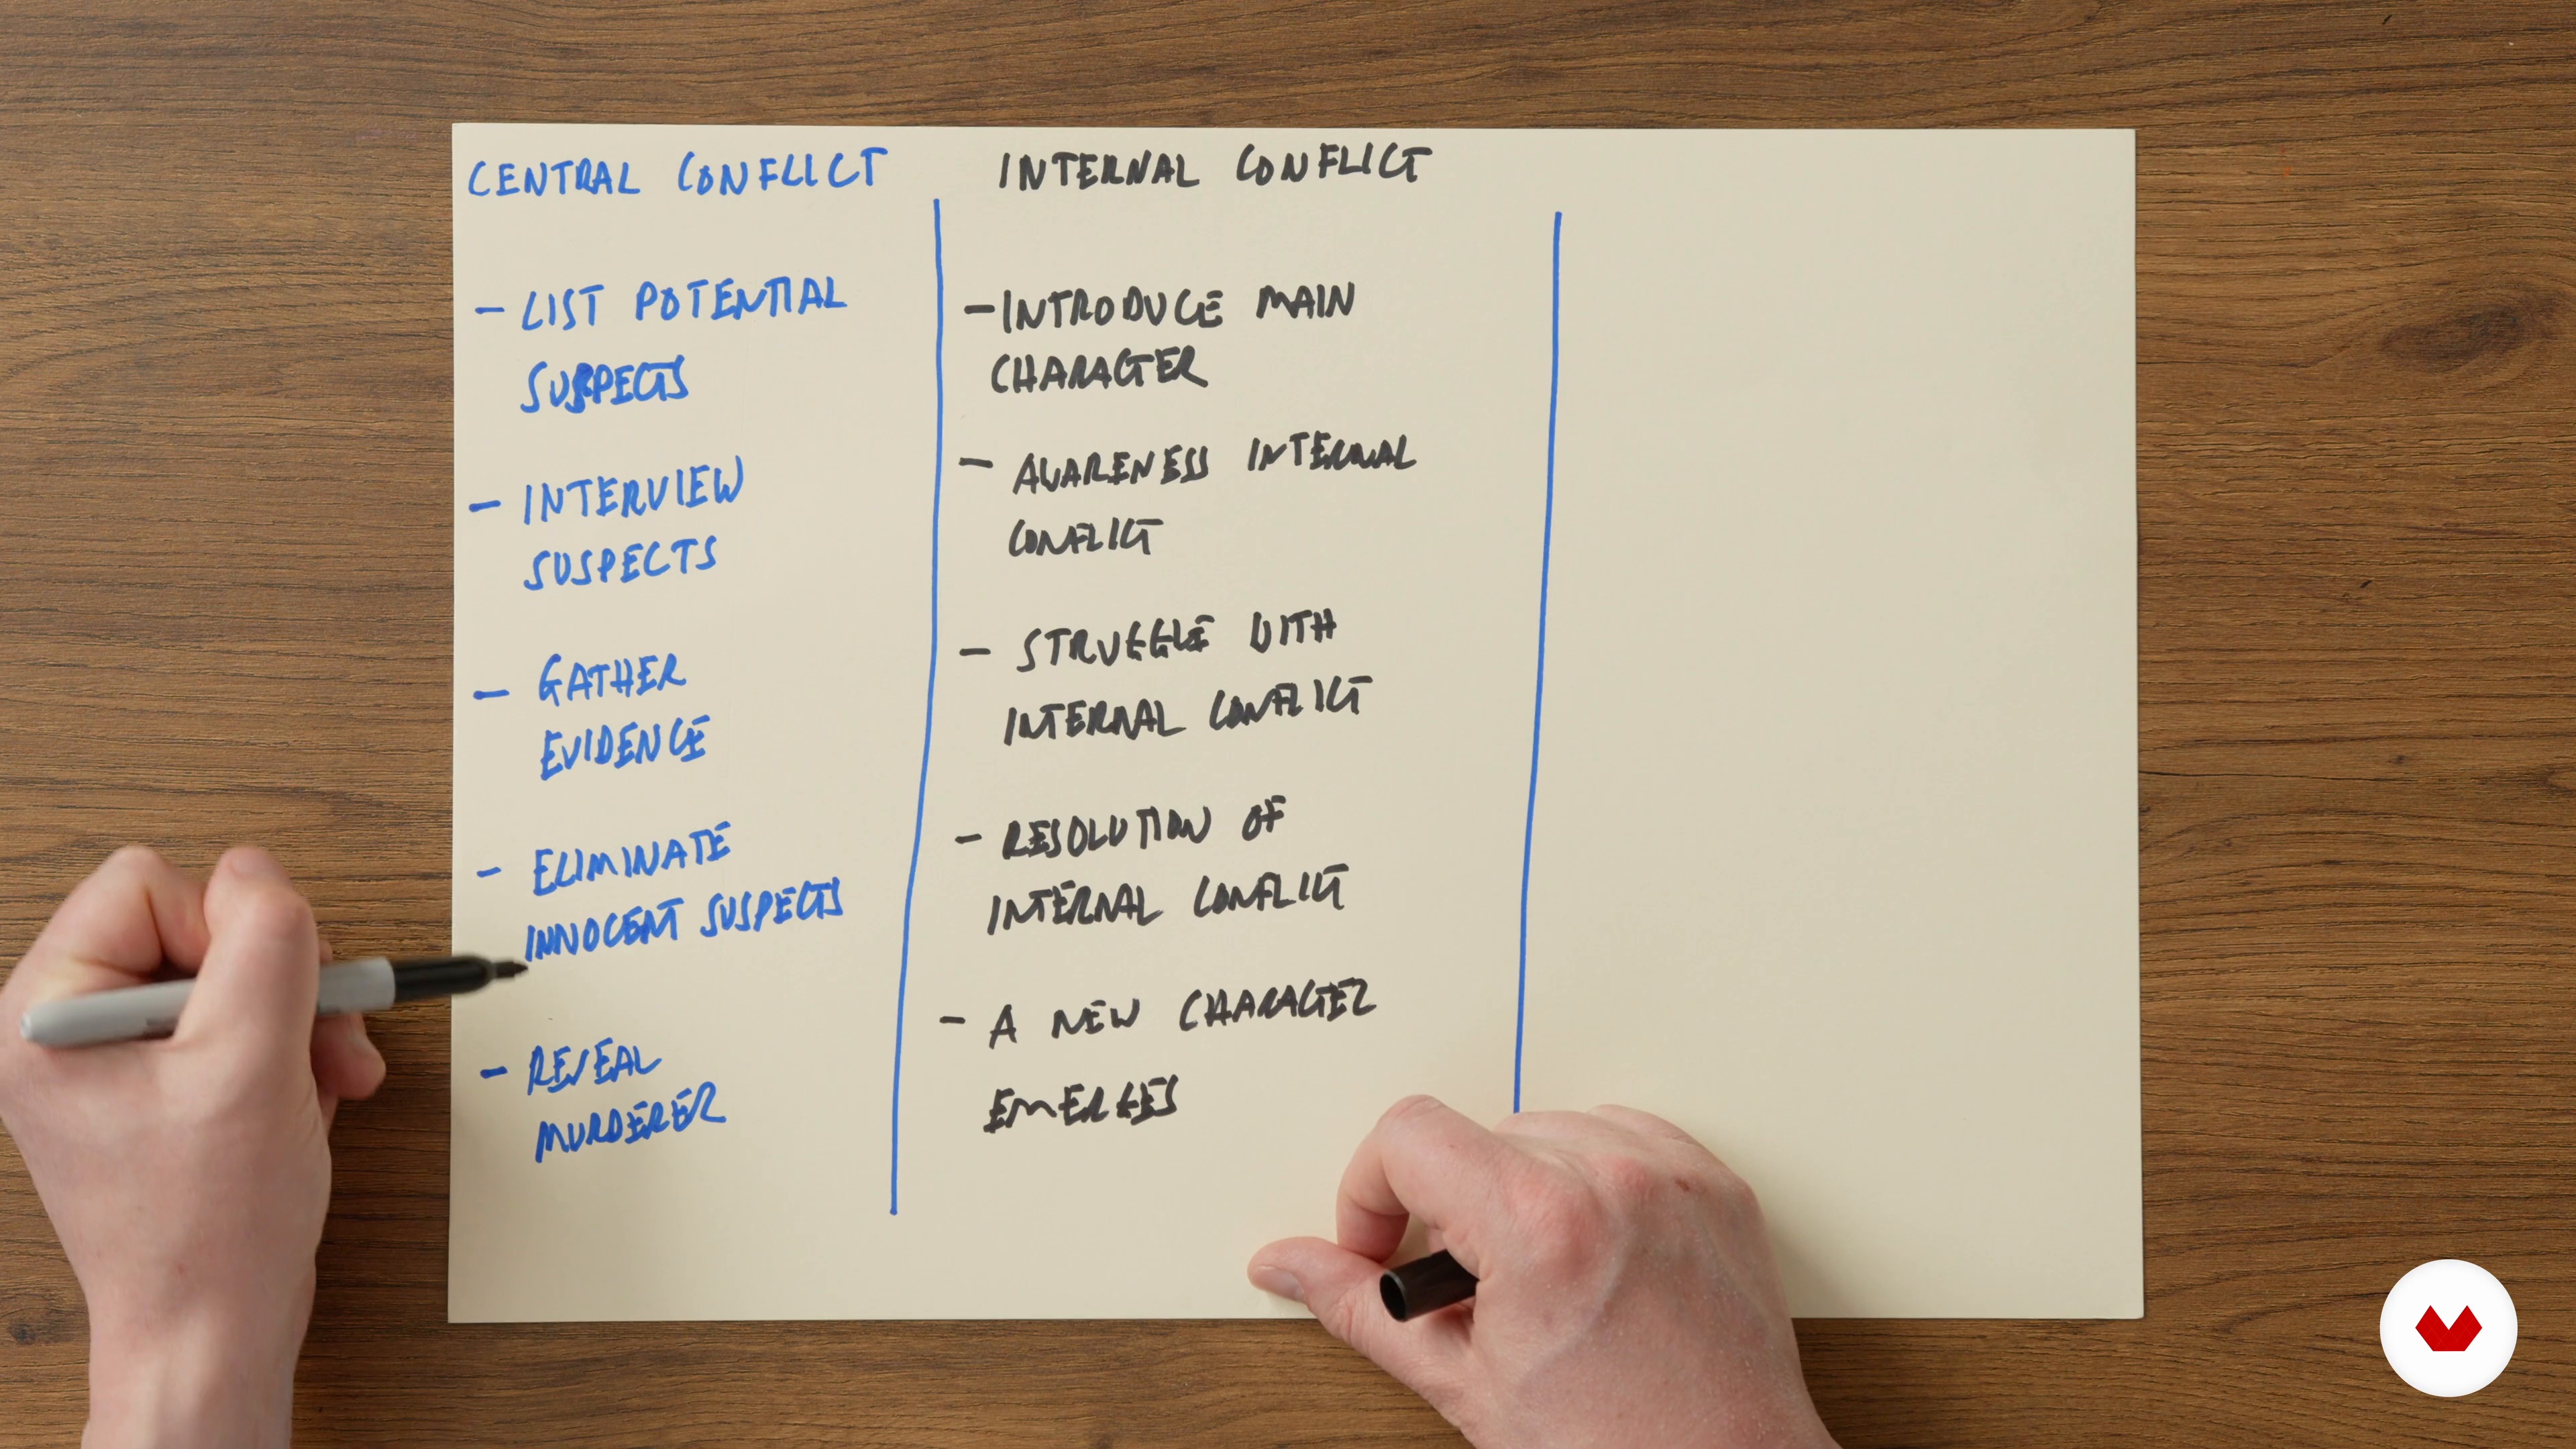 CENTRAL CONFLICT
- LIST POTENTIAL
SUSPECTS
- INTERVIEW
SUSPECTS
- GATHER
EVIDENCE
- ELIMINATE
INNOCENT SUSPECTS
- REVEAL
MURDERER
INTERNAL CONFLICT
- INTRODUCE MAIN
CHARACTER
- AWARENESS INTERNAL
CONFLICT
- STRUGGLE WITH
INTERNAL CONFLICT
- RESOLUTION OF
INTERNAL CONFLICT
- A NEW CHARACTER
EMERGES